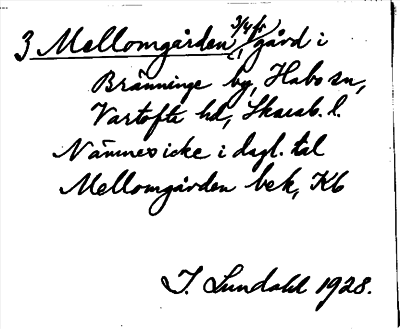 3 Mellomgården, 3/4 fr gård i
Bränninge by, Habo sn,
Vartofta hd, Skarab. l.
Nämnes icke i dagl. tal
Mellomgården bek, Kb
I. Lundahl 1928.